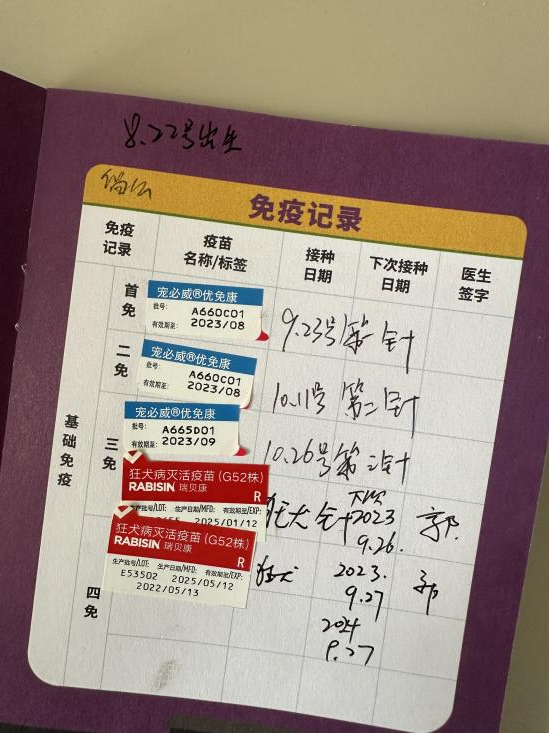 8.22号出生
免疫记录
免疫记录 疫苗名称/标签 接种日期 下次接种日期 医生签字
基础免疫
首免
宠必威®优免康
批号: A660C01
有效期至: 2023/08
9.23号第一针
二免
宠必威®优免康
批号: A660C01
有效期至: 2023/08
10.11号 第二针
三免
宠必威®优免康
批号: A665D01
有效期至: 2023/09
10.26号第三针
狂犬病灭活疫苗(G52株)
RABISIN 瑞贝康
R
生产批号/LOT: 生产日期/MFD: 有效期至/EXP:
2025/01/12
狂犬针 下次 2023 9.26. 郭.
四免
狂犬病灭活疫苗(G52株)
RABISIN 瑞贝康
R
生产批号/LOT: 生产日期/MFD: 有效期至/EXP:
E53502 2025/05/12
2022/05/13
狂犬 2023. 9.27 郭
2024
9.27